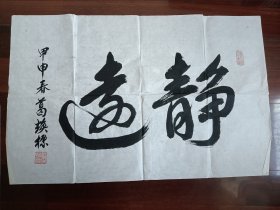 静远
甲申春葛